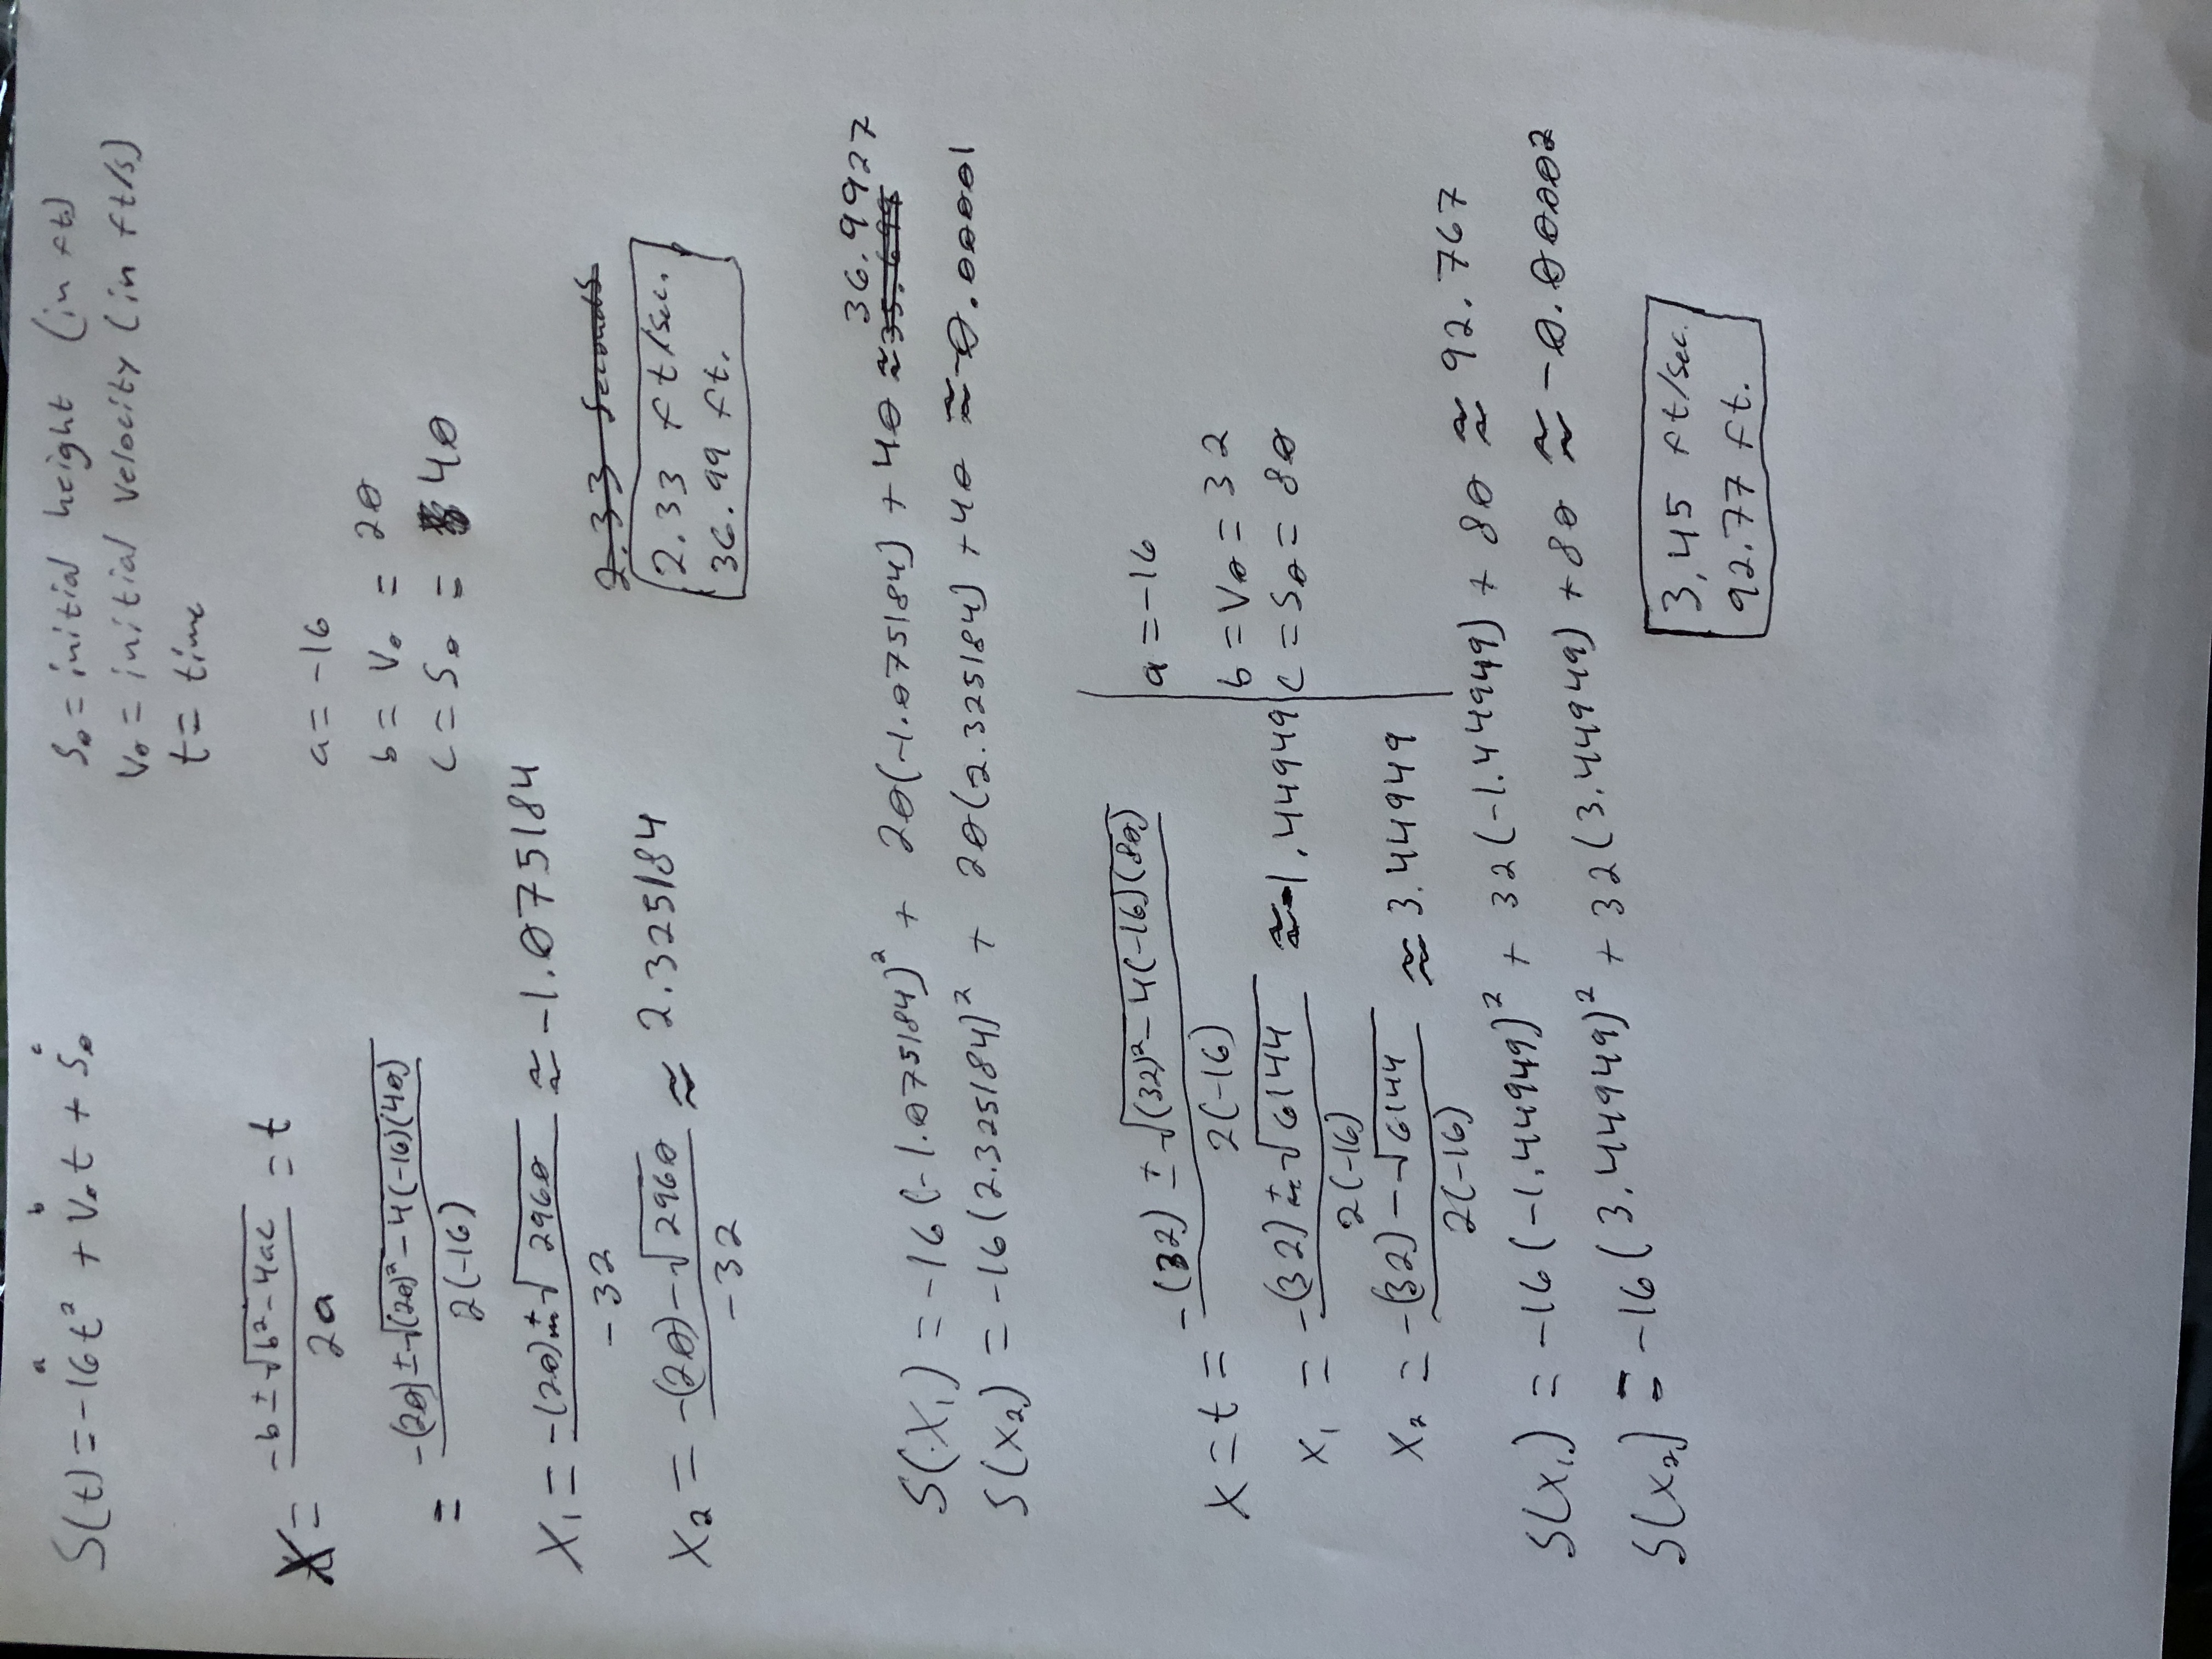 a b c
S(t) = -16t² + V₀t + S₀
S₀ = initial height (in ft)
V₀ = initial velocity (in ft/s)
t = time
X = (-b ± √(b² - 4ac)) / 2a = t
a = -16
b = V₀ = 20
c = S₀ = 40
= (-(20) ± √((20)² - 4(-16)(40))) / 2(-16)
X₁ = (-(20) + √2960) / -32 ≈ -1.075184
X₂ = (-(20) - √2960) / -32 ≈ 2.325184
2.33 seconds
2.33 ft/sec.
36.99 ft.
36.9927
S(X₁) = -16(-1.075184)² + 20(-1.075184) + 40 ≈ 35.699
S(X₂) = -16(2.325184)² + 20(2.325184) + 40 ≈ -0.00001
X = t = (-(32) ± √((32)² - 4(-16)(80))) / 2(-16)
a = -16
b = V₀ = 32
c = S₀ = 80
X₁ = (-(32) + √6144) / 2(-16) ≈ -1.44949
X₂ = (-(32) - √6144) / 2(-16) ≈ 3.44949
S(X₁) = -16(-1.44949)² + 32(-1.44949) + 80 ≈ 92.767
S(X₂) = -16(3.44949)² + 32(3.44949) + 80 ≈ -0.00002
3.45 ft/sec.
92.77 ft.